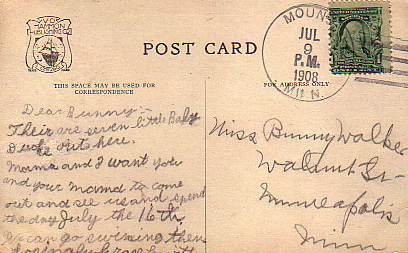 V.O. HAMMON
PUBLISHING CO.
POST CARD
THIS SPACE MAY BE USED FOR
CORRESPONDENCE
FOR ADDRESS ONLY
MOUN
JUL
9
P.M.
1908
MINN.
Dear Bunny:-
Their are seven little Baby
Ducks out here.
Mama and I want you
and your mama to come
out and see us and spend
the day July the 16th
We can go swiming then
Miss Bunny Walker
Walnut St-
Minneapolis
Minn